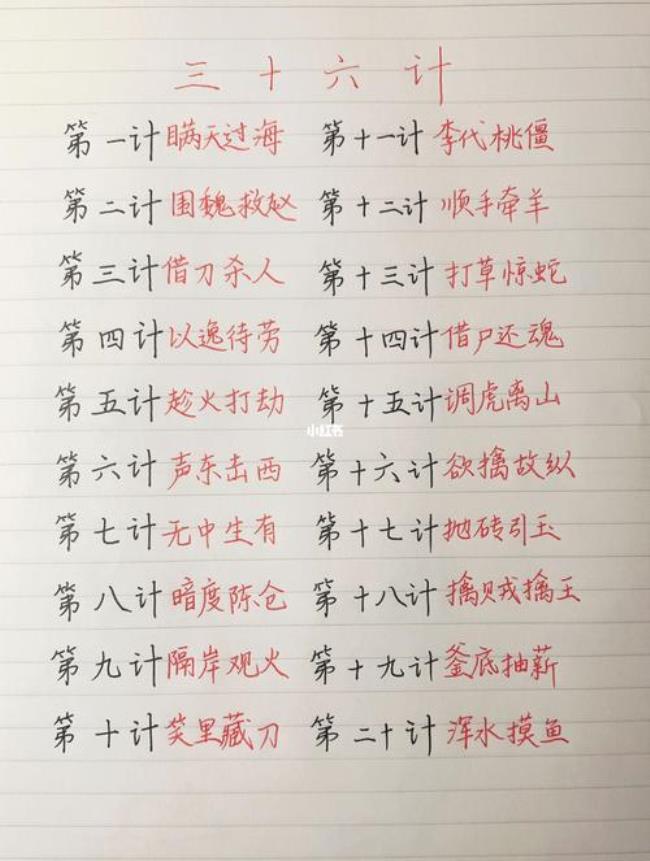 三十六计
第一计 瞒天过海 第十一计 李代桃僵
第二计 围魏救赵 第十二计 顺手牵羊
第三计 借刀杀人 第十三计 打草惊蛇
第四计 以逸待劳 第十四计 借尸还魂
第五计 趁火打劫 第十五计 调虎离山
小红书
第六计 声东击西 第十六计 欲擒故纵
第七计 无中生有 第十七计 抛砖引玉
第八计 暗度陈仓 第十八计 擒贼擒王
第九计 隔岸观火 第十九计 釜底抽薪
第十计 笑里藏刀 第二十计 浑水摸鱼